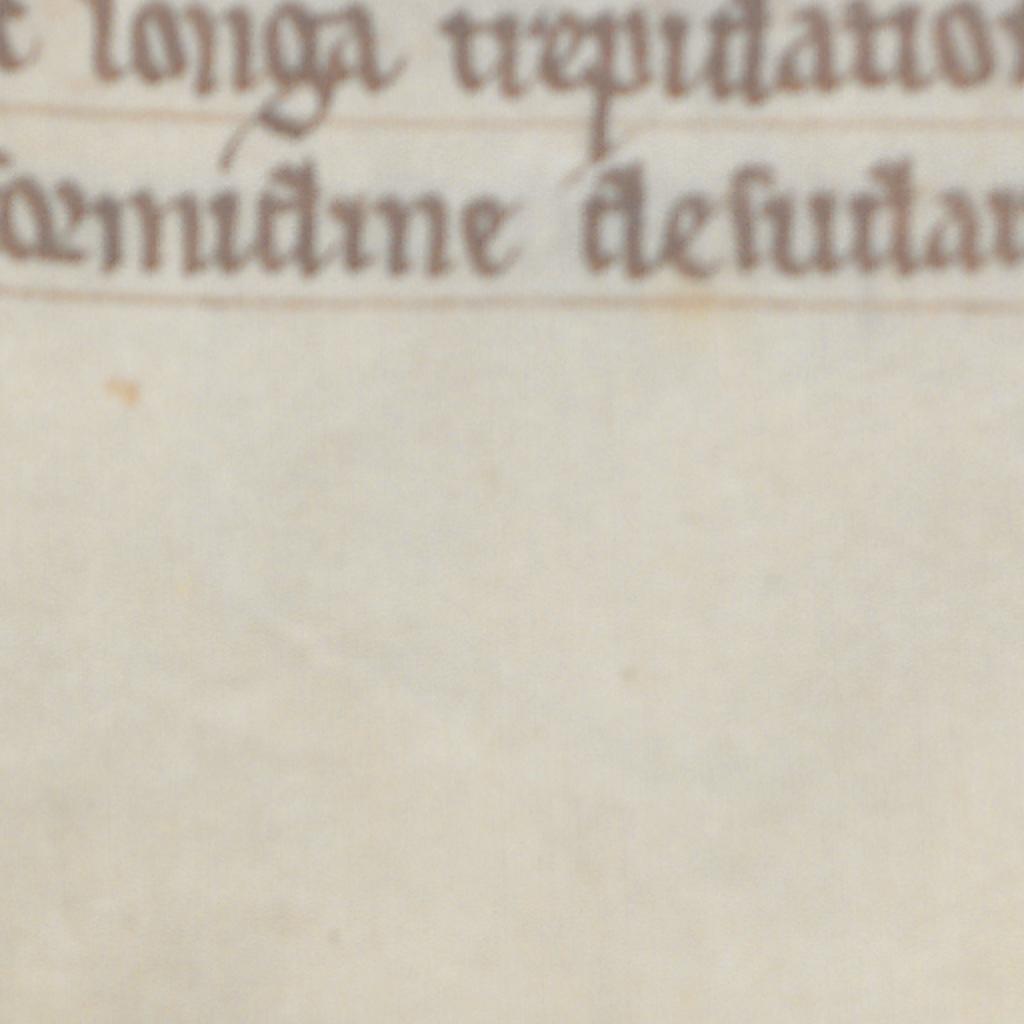 longa trepidation
formidine desudar